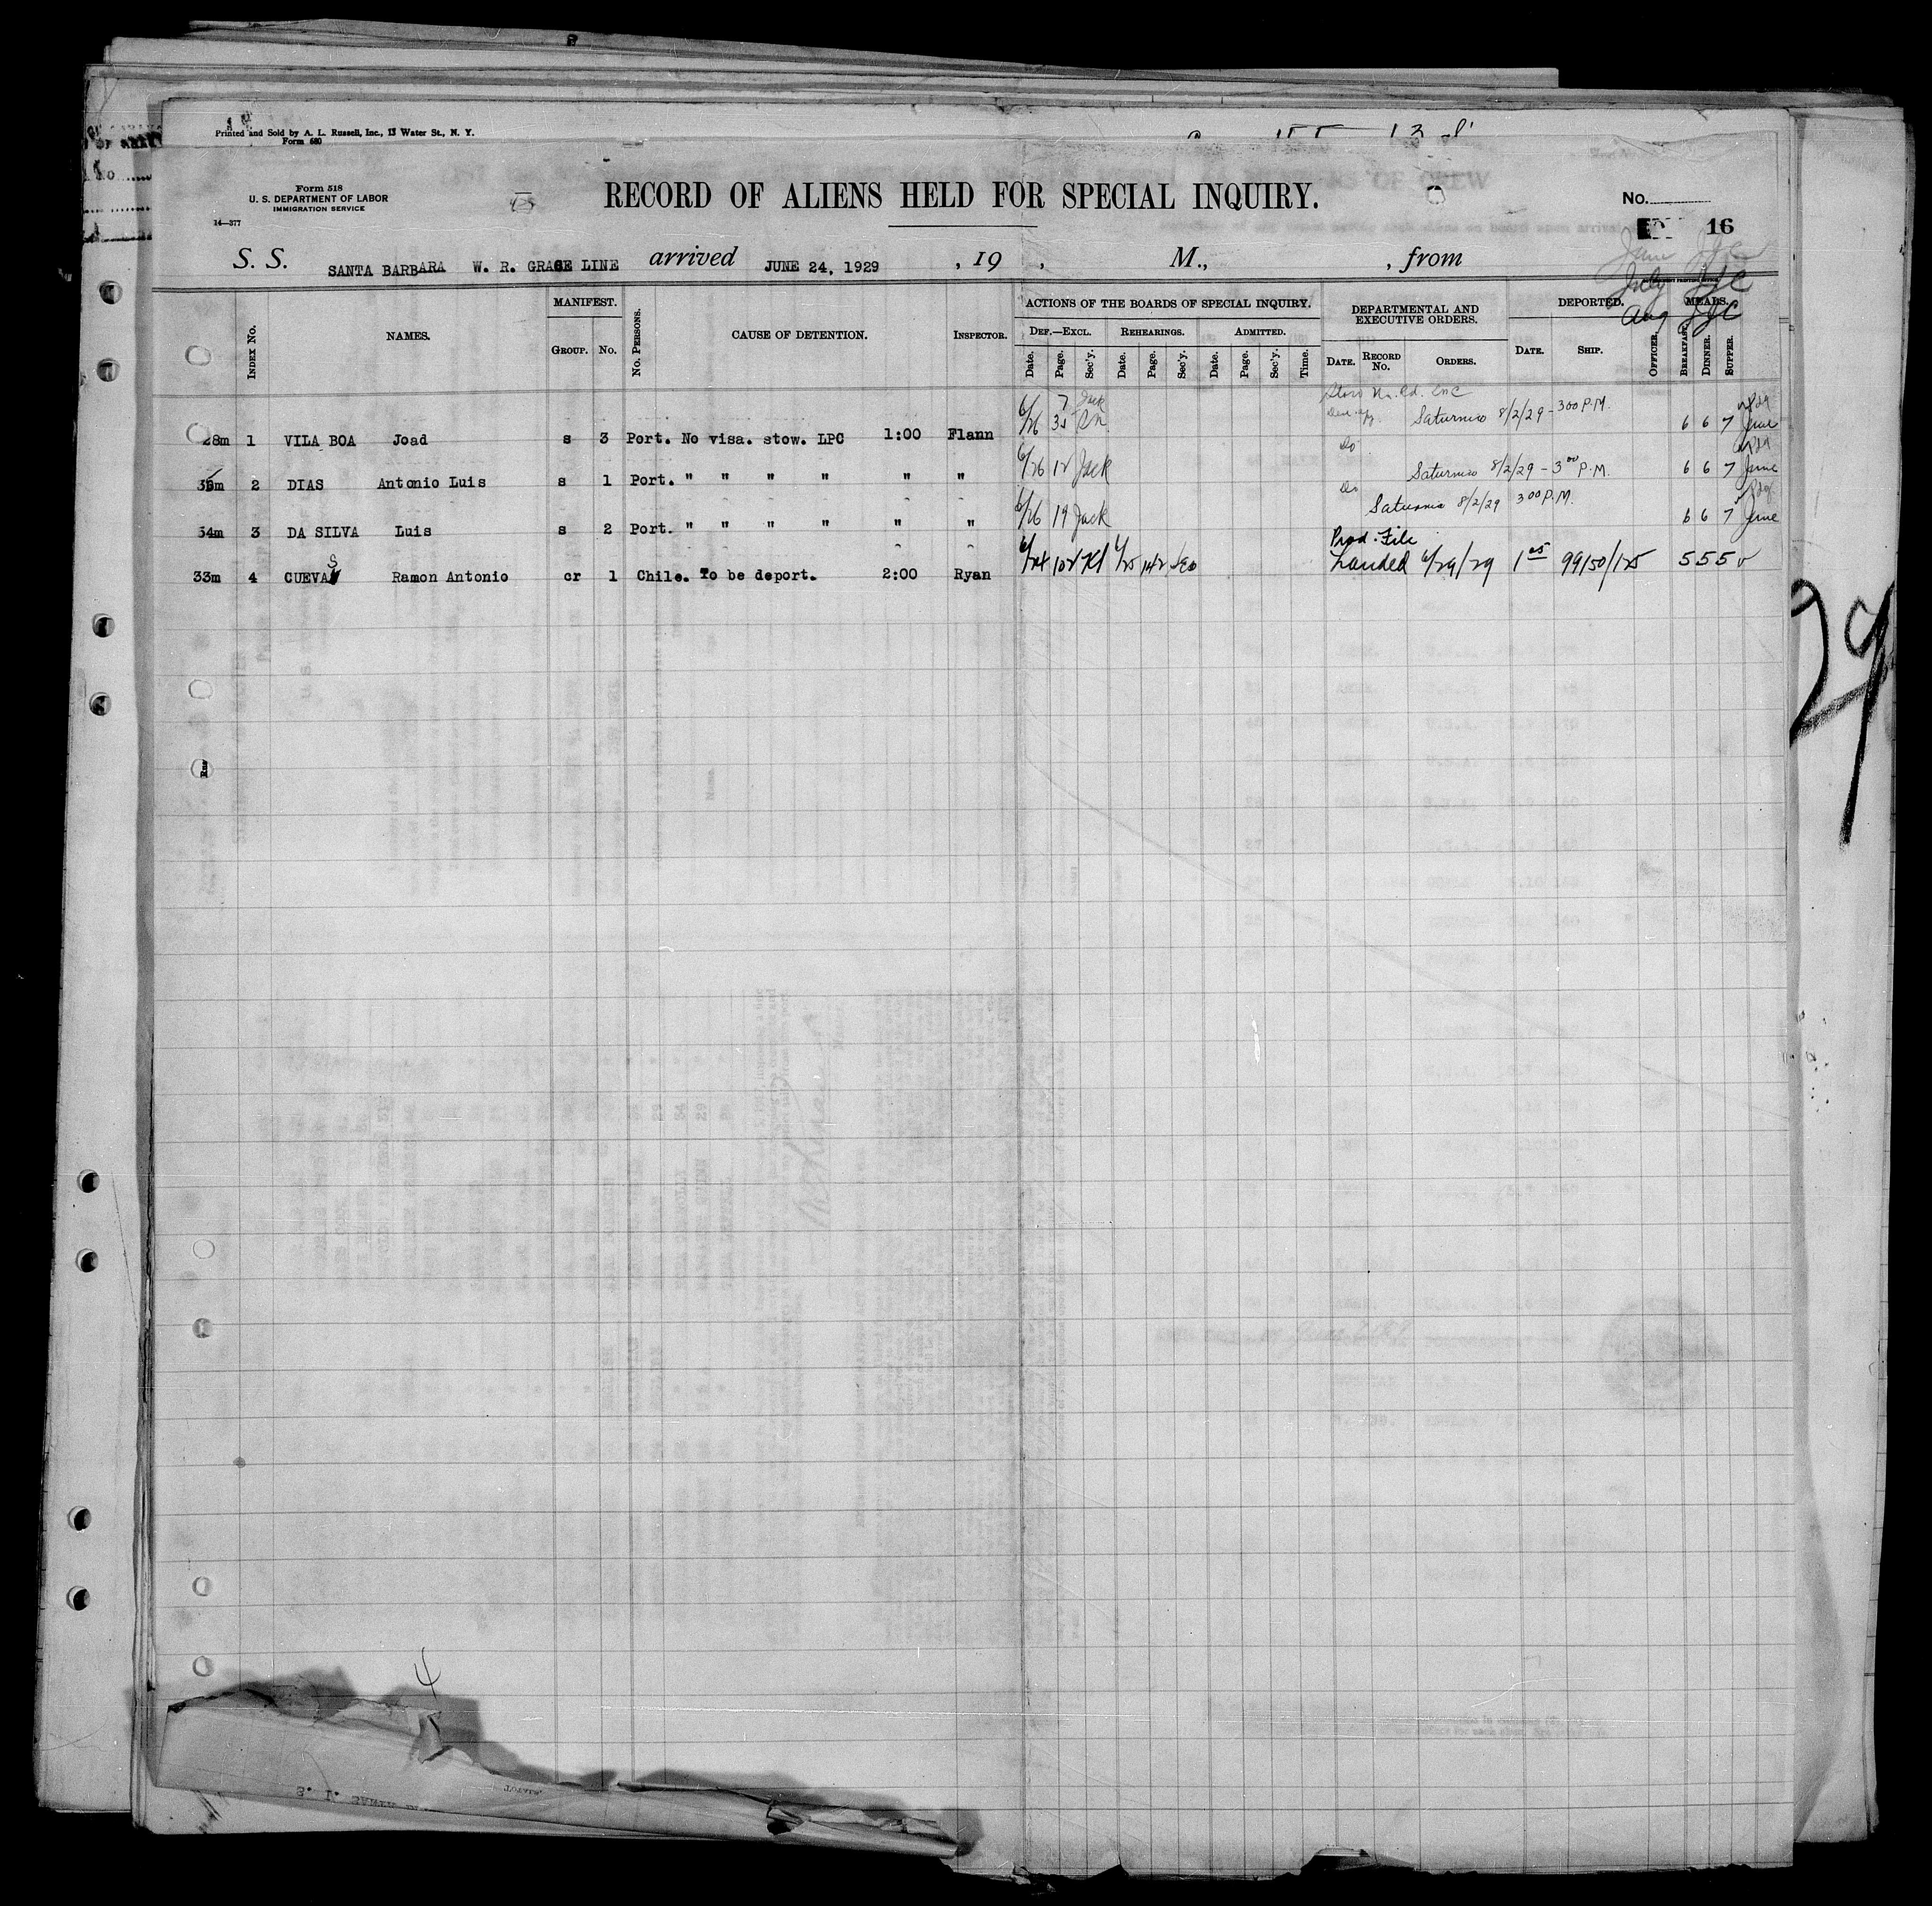 Printed and Sold by A. L. Russell, Inc., 13 Water St., N. Y.
Form 680
Form 518
U. S. DEPARTMENT OF LABOR
IMMIGRATION SERVICE
14—377
RECORD OF ALIENS HELD FOR SPECIAL INQUIRY.
No.
16
S. S. SANTA BARBARA W. R. GRACE LINE arrived JUNE 24, 1929 , 19 , M., , from
June JJC
July JJC
Aug JJC
INDEX No. NAMES. MANIFEST. GROUP. No. No. PERSONS. CAUSE OF DETENTION. INSPECTOR. ACTIONS OF THE BOARDS OF SPECIAL INQUIRY. DEPARTMENTAL AND EXECUTIVE ORDERS. DEPORTED. MEALS.
DEF.—EXCL. REHEARINGS. ADMITTED.
Date. Page. Sec'y. Date. Page. Sec'y. Date. Page. Sec'y. Time. DATE. RECORD No. ORDERS. DATE. SHIP. OFFICER. BREAKFAST. DINNER. SUPPER.
28m 1 VILA BOA Joad s 3 Port. No visa. stow. LPC 1:00 Flann 6/26 7 Jack Saturnia 8/2/29 - 3 00 P.M. 6 6 7 June
2 DIAS Antonio Luis s 1 Port. " " " " " " 6/26 12 Jack Do Saturnia 8/2/29 - 3 00 P.M. 6 6 7 June
34m 3 DA SILVA Luis s 2 Port. " " " " " " 6/26 19 Jack Do Saturnia 8/2/29 3 00 P.M. 6 6 7 June
Prod. File
33m 4 CUEVAS Ramon Antonio cr 1 Chile. To be deport. 2:00 Ryan 6/24 102 6/25 142 Landed 6/29/29 1 05 99150/125 5 5 5
29
4